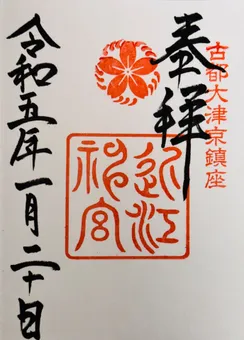 古都大津京鎮座
奉拝
近江
神宮
令和五年一月二十日